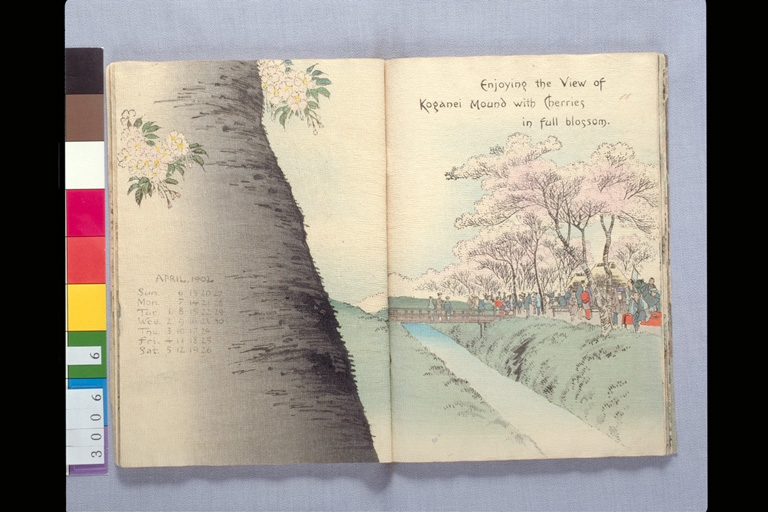 Enjoying the View of
Koganei Mound with Cherries
in full blossom.
APRIL, 1902
Sun. 6 13 20 27
Mon. 7 14 21 28
Tue. 1 8 15 22 29
Wed. 2 9 16 23 30
Thu. 3 10 17 24
Fri. 4 11 18 25
Sat. 5 12 19 26
3006 6